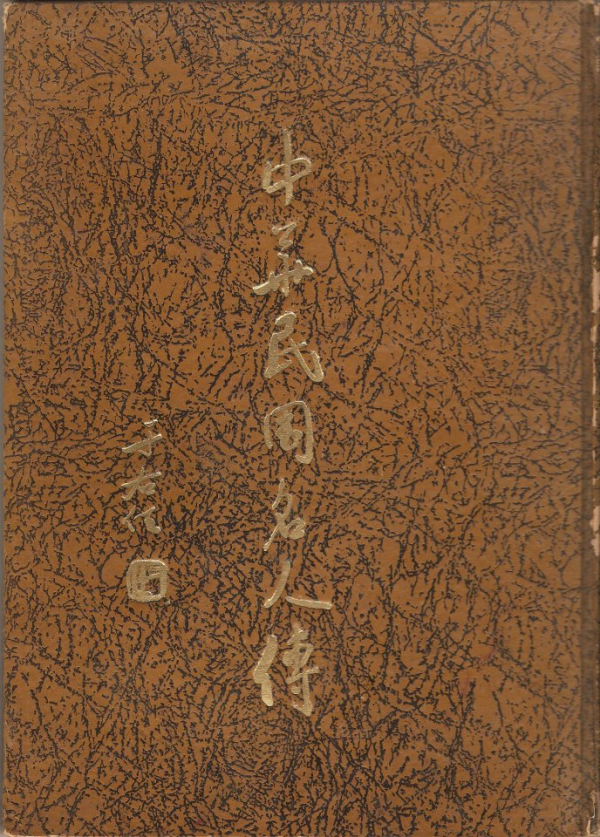 中華民國名人傳
于右任